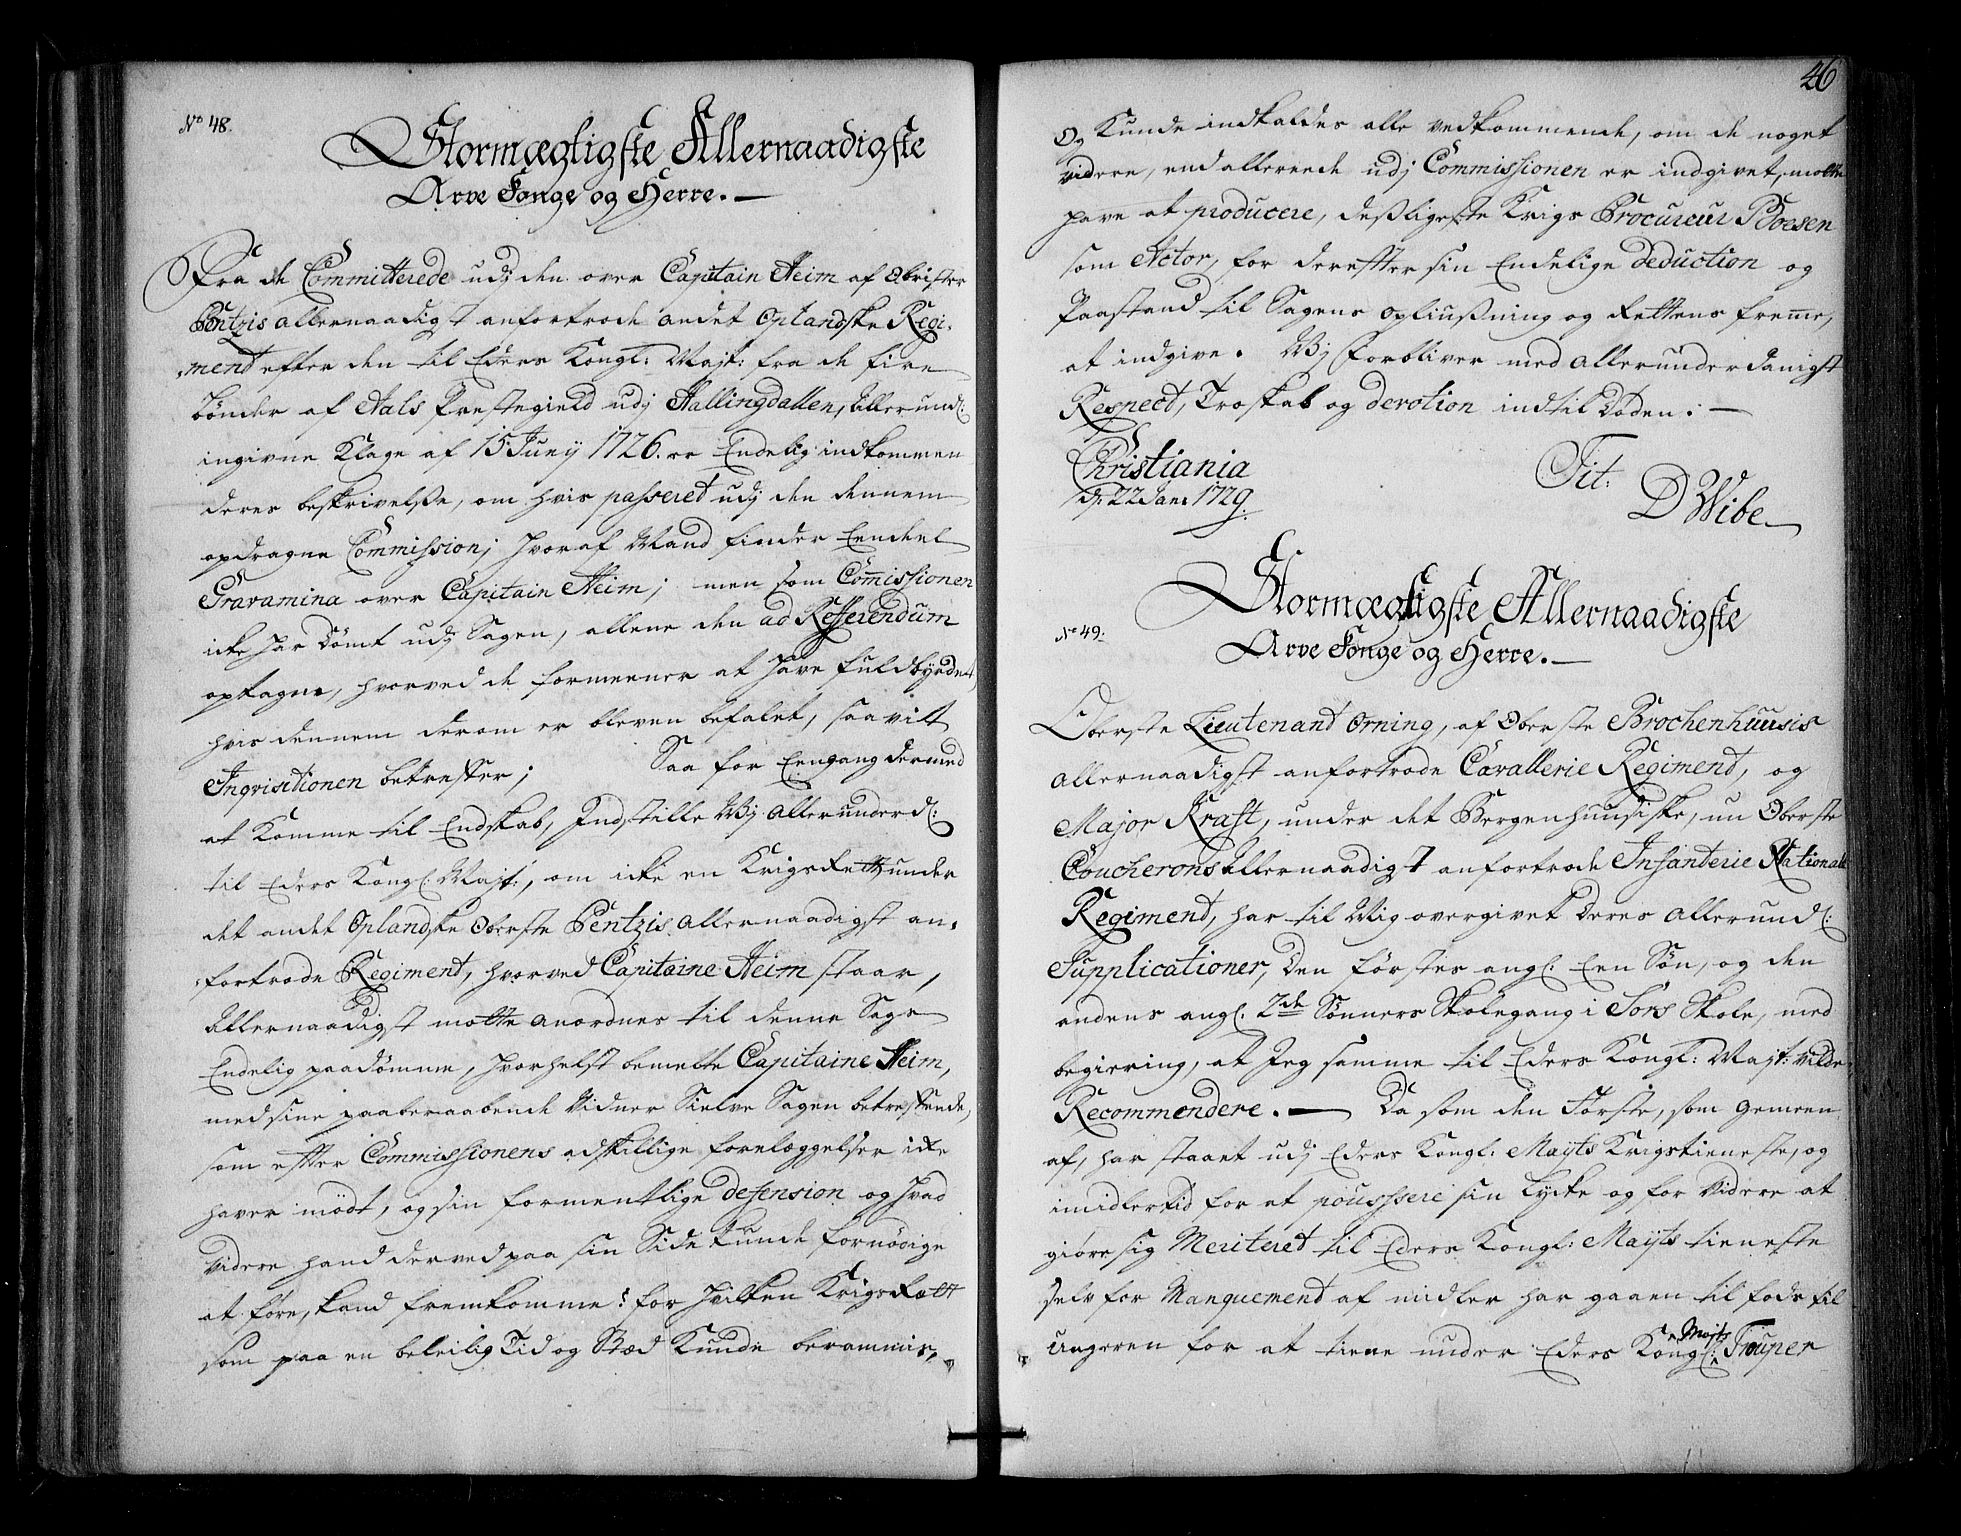 No 48.
Stormægtigste Allernaadigste
Arve Konge og Herre.
Fra de Committerede udj den over Capitain Heim af Obrister
Pentzis allernaadigst anfortrode andet Oplandske Regi-
ment efter den til Eders Kongl: Majt: fra de fire
bønder af Aals Prestegield udj Hallingdallen, Allerund:
ingivne Klage af 15 Juny 1726. er Endelig indkommen
deres beskrivelse, om hvis passeret udj den dennem
opdragne Commission; hvoraf Mand finder Eendeel
Gravamina over Capitain Heim; men som Commissionen
icke har dømt udj Sagen, allene den ad Refferendum
optagne, hvorved de formeener at have fuldbyrdet,
hvis dennem derom er bleven befalet, saavitt
Inqvisitionen betreffer; Saa for Eengang dermed
at komme til Endskab, Indstille Wj allerunderd:
til Eders Kongl: Majt:, om icke en Krigs Rett under
det andet Oplandske Oberste Pentzis allernaadigst an-
fortrode Regiment, hvorved Capitaine Heim staar,
Allernaadigst motte anordnes til denne Sags
Endelig paadømme, hvorhelst bemelte Capitaine Heim,
med sine paaberaabende Vidner Sielve Sagen betreffende,
som efter Commissionens adskillige forelæggelser icke
haver mødt, og sin formentlige defension og hvad
Videre hand derved paa sin Side kunde fornødige
at føre, kand fremkomme: for hvilken Krigs Rett
som paa en beleilig Tid og Stæd Kunde berammis,
46
og Kunde indkaldes alle vedkommende, om de noget
videre, end allereede udj Commissionen er indgivet, motte
have at producere, desligeste Krigs Procureur Povesen
som Actor, for derefter sin Endelige deduction og
Paastand til Sagens opliusning og Rettens fremme,
at indgive. Wj forbliver med allerunderdanigst
Respect, Troskab og devotion indtil døden.
Christiania
d: 22 Jan: 1729.
Tit:
D Wibe
No 49.
Stormægtigste Allernaadigste
Arve Konge og Herre.
Oberste Lieutenant Orning, af Oberste Brochenhuusis
allernaadigst anfortrode Cavallerie Regiment, og
Major Kraft, under det Bergenhuusiske, nu Oberste
Coucherons Allernaadigst anfortrode Infanterie National
Regiment, har til Mig overgivet deres allerund:
Supplicationer, den førstes angl: Een Søn, og den
andens angl: 2de Sønners Skolegang i Sors Skole, med
begiering, at Jeg samme til Eders Kongl: Majt: vilde
Recommendere. Da som den Første, som gemeen
af, har staaet udj Eders Kongl: Mayts Krigstieneste, og
imidlertid for at poussere sin lycke og for Videre at
giøre sig Meriteret til Eders Kongl: Mayts tieneste
selv for Manquement af midler har gaaen til fods til
Ungeren for at tiene under Eders Kongl: Mayts Trouper